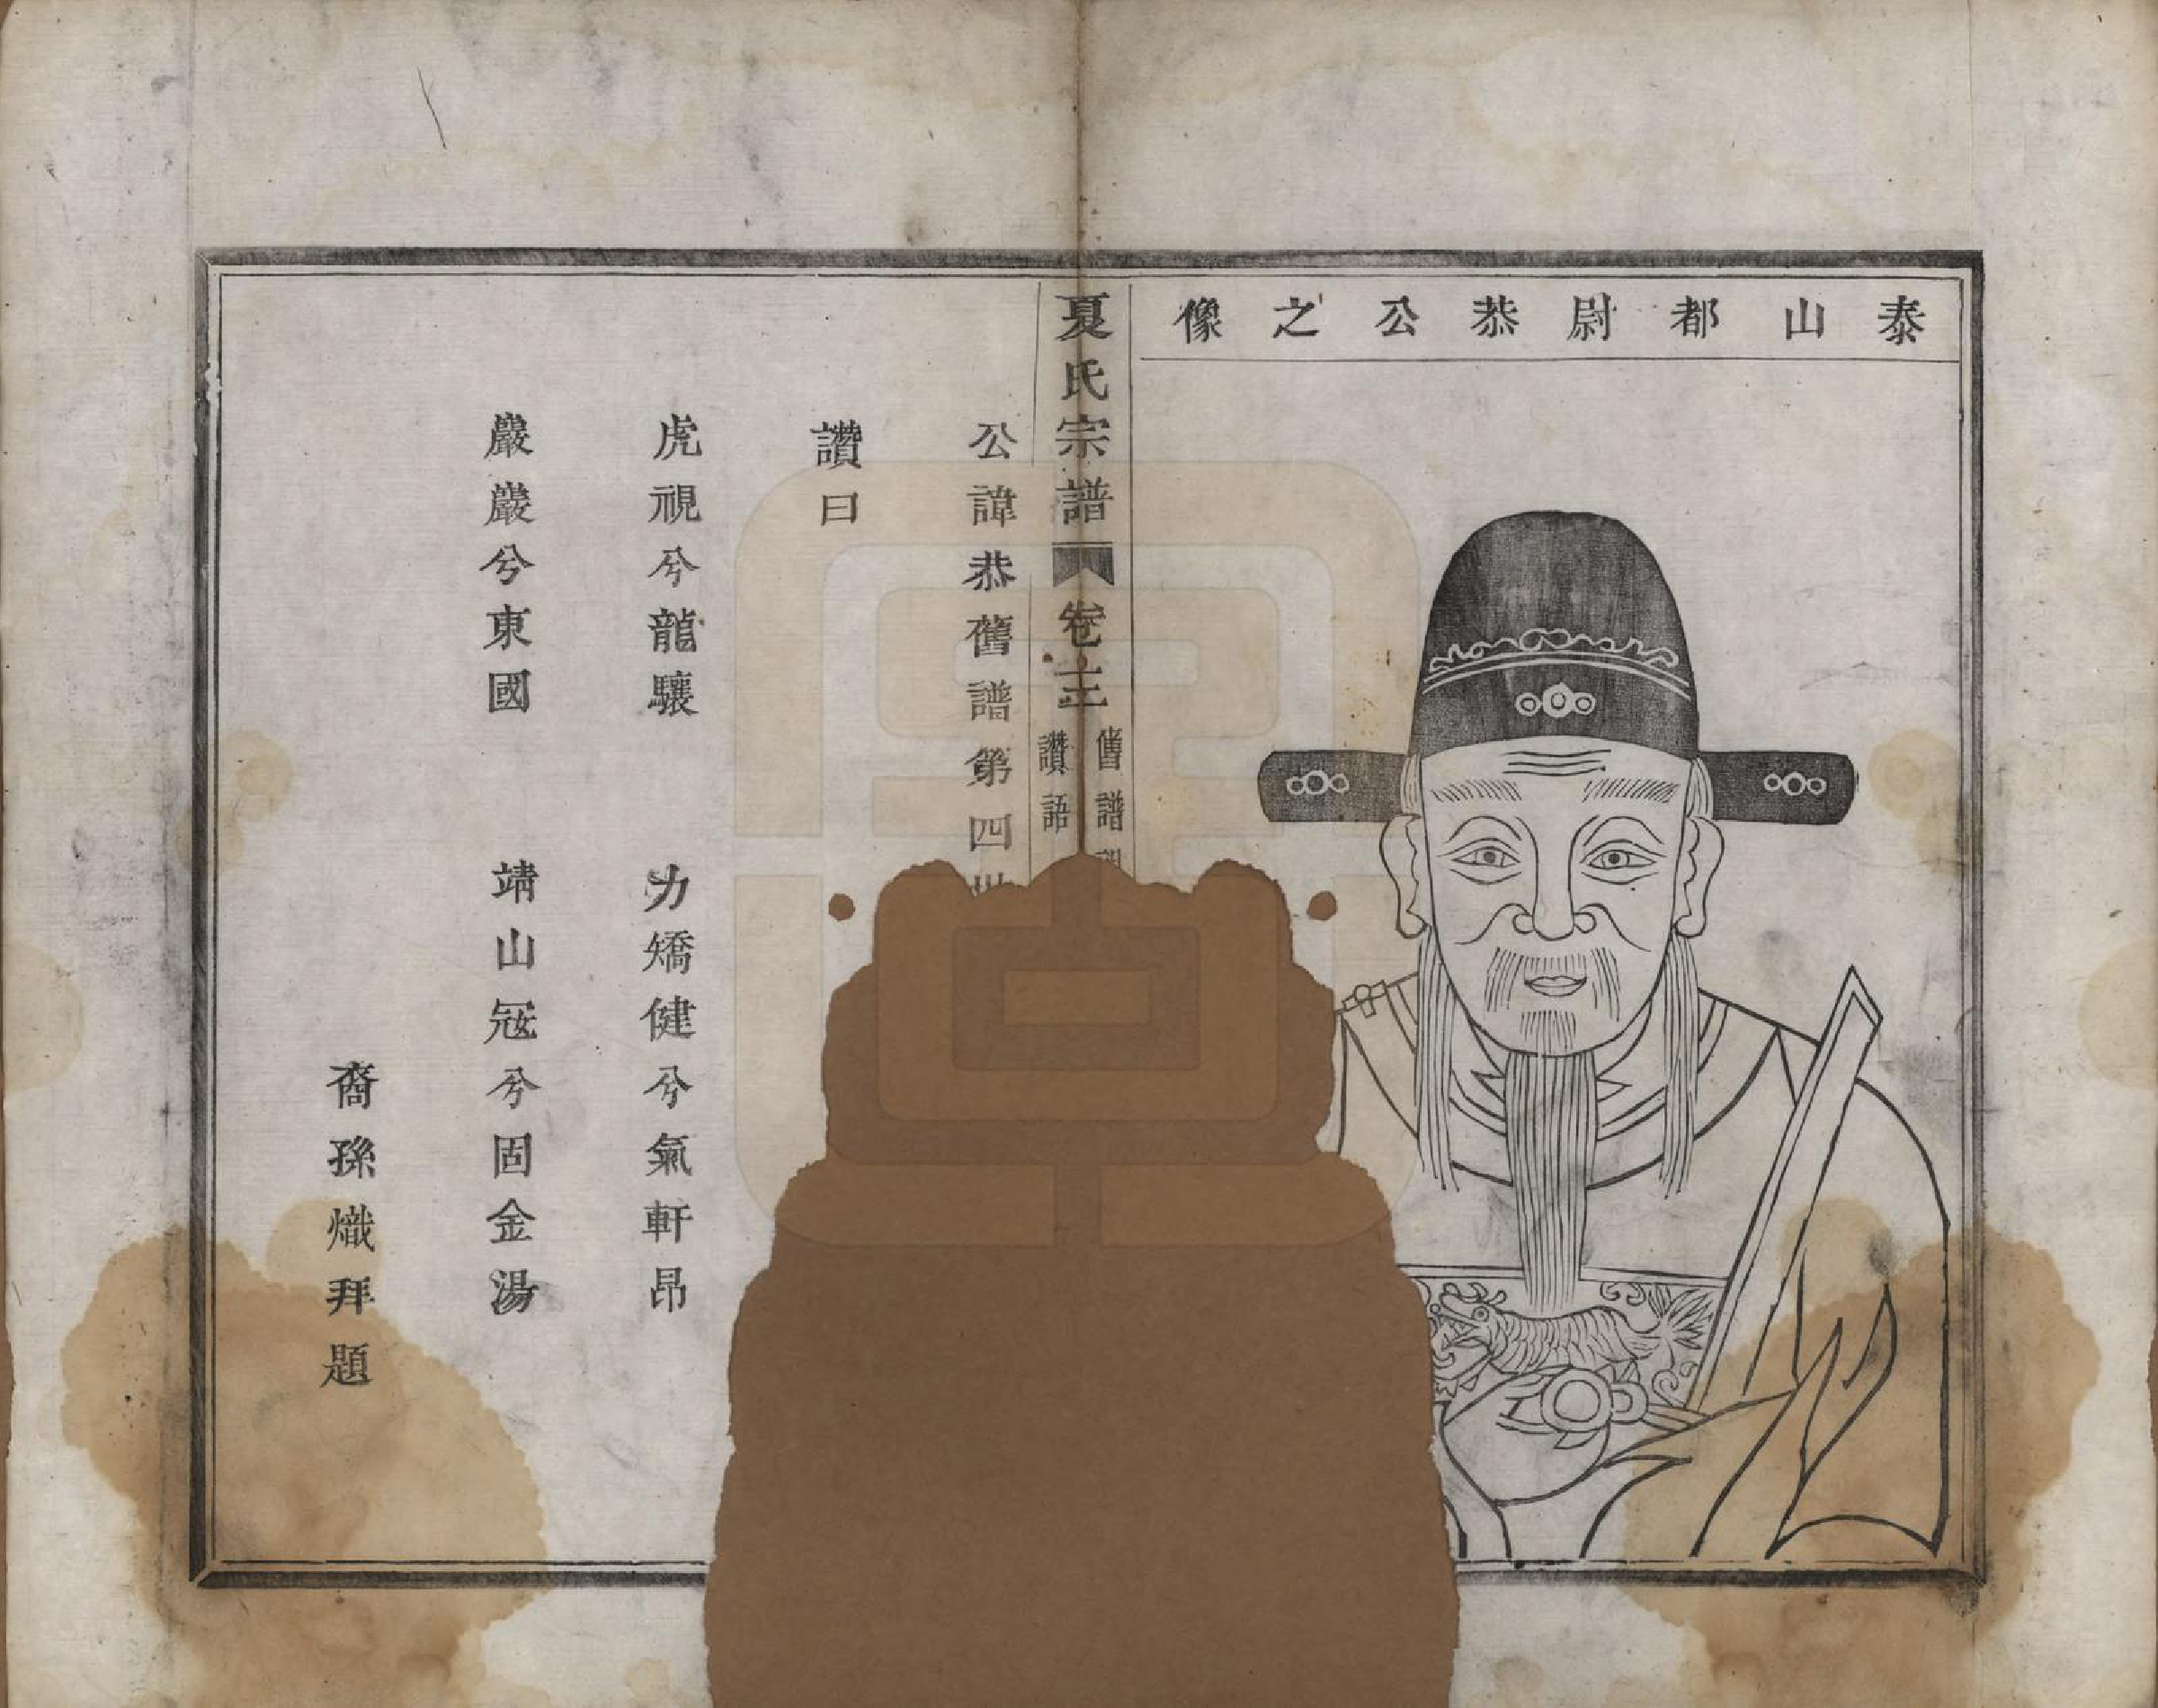 泰山都尉恭公之像
夏氏宗譜
卷
舊譜
讚語
公諱恭舊譜第四
讚曰
虎視兮龍驤 力矯健兮氣軒昂
嚴嚴兮東國 靖山冦兮固金湯
裔孫熾拜題